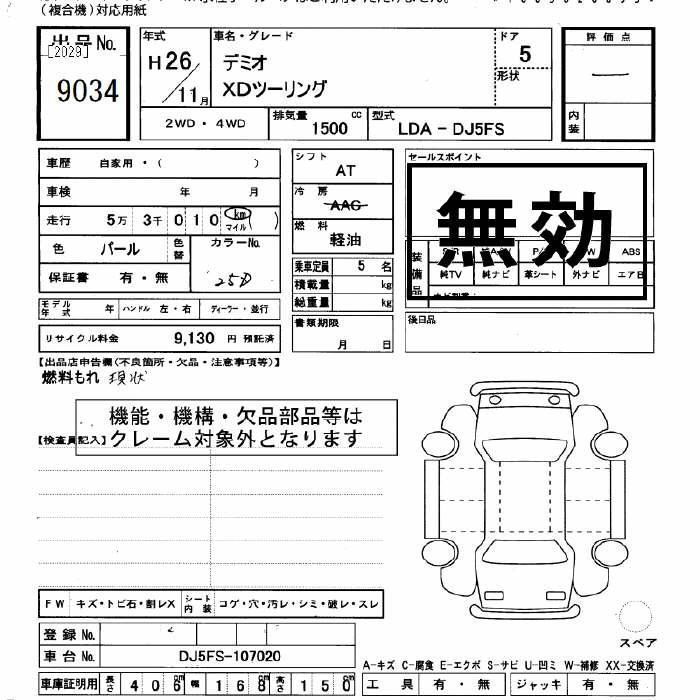 （複合機）対応用紙
出品No.
[2029]
9034
年式
H26/11月
車名・グレード
デミオ
XDツーリング
ドア
5
形状
評価点
内装
2WD・4WD
排気量
1500 cc
型式
LDA - DJ5FS
車歴 自家用・（ ）
車検 年 月
走行 5万 3千 0 1 0 km マイル
色 パール 色替 カラーNo.
保証書 有・無 25D
モデル年式 年 ハンドル 左・右 ディーラー・並行
リサイクル料金 9,130 円 預託済
シフト
AT
冷房
AAC
燃料
軽油
乗車定員 5 名
積載量 kg
総重量 kg
書類期限
月 日
セールスポイント
無効
装備品
ABS
純TV 純ナビ 革シート 外ナビ エアB
後日品
【出品店申告欄(不良箇所・欠品・注意事項等)】
燃料もれ 現状
機能・機構・欠品部品等は
クレーム対象外となります
【検査員記入】
FW キズ・トビ石・割レX シート内装 コゲ・穴・汚レ・シミ・破レ・スレ
登録No.
車台No. DJ5FS-107020
車庫証明用 長さ 406 幅 168 高さ 150 cm
スペア
A-キズ C-腐食 E-エクボ S-サビ U-凹ミ W-補修 XX-交換済
工具 有・無 ジャッキ 有・無